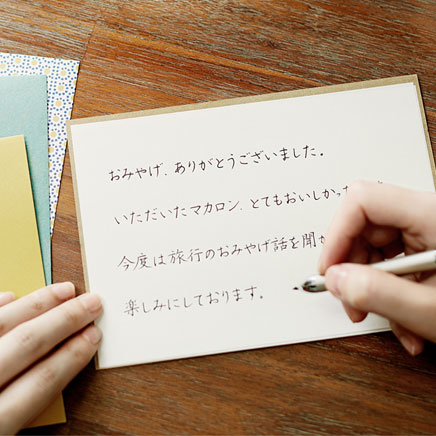 おみやげ、ありがとうございました。
いただいたマカロン、とてもおいしかっ
今度は旅行のおみやげ話を聞
楽しみにしております。